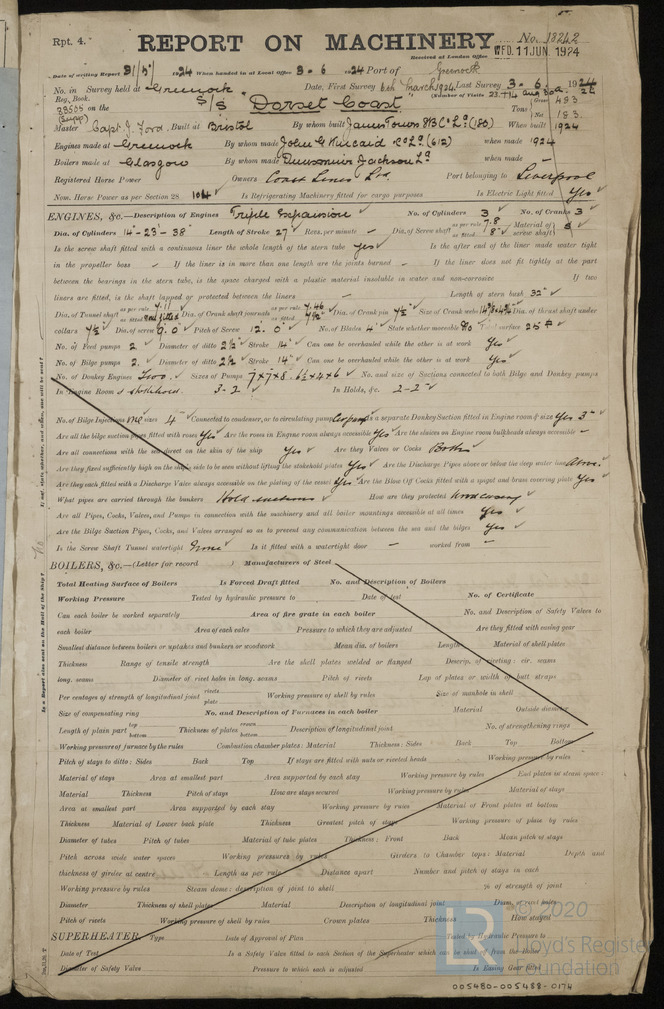 Rpt. 4.
REPORT ON MACHINERY.
No. 18242
Received at London Office WED. 11 JUN. 1924
Date of writing Report 31/5/ 1924 When handed in at Local Office 3-6 1924 Port of Greenock
No. in Survey held at Greenock Date, First Survey 6th March 1924 Last Survey 3-6 1924
Reg. Book. (Number of Visits
23505 on the S/S "Dorset Coast" Tons Gross 483
(Supp) Net 183
Master Capt. J. Ford, Built at Bristol By whom built When built 1924
Engines made at Greenock By whom made John G Kincaid & Co Ld (612) when made 1924
Boilers made at Glasgow By whom made Dunsmuir Jackson Ld when made —
Registered Horse Power Owners Coast Lines Ltd. Port belonging to Liverpool
Nom. Horse Power as per Section 28 104 Is Refrigerating Machinery fitted for cargo purposes Is Electric Light fitted Yes
ENGINES, &c.—Description of Engines Triple Expansion No. of Cylinders 3 No. of Cranks 3
Dia. of Cylinders 14-23-38 Length of Stroke 27 Revs. per minute — Dia. of Screw shaft as per rule 7.8 as fitted 8" Material of screw shaft
Is the screw shaft fitted with a continuous liner the whole length of the stern tube yes Is the after end of the liner made water tight
in the propeller boss - If the liner is in more than one length are the joints burned - If the liner does not fit tightly at the part
between the bearings in the stern tube, is the space charged with a plastic material insoluble in water and non-corrosive If two
liners are fitted, is the shaft lapped or protected between the liners Length of stern bush 32"
Dia. of Tunnel shaft as per rule 7.11 as fitted Dia. of Crank shaft journals as per rule 7.46 as fitted 7½ Dia. of Crank pin 7½ Size of Crank webs Dia. of thrust shaft under
collars 7½ Dia. of screw 9.0 Pitch of Screw 12.0 No. of Blades 4 State whether moveable No Total surface 25
No. of Feed pumps 2 Diameter of ditto 2½ Stroke 14" Can one be overhauled while the other is at work Yes
No. of Bilge pumps 2. Diameter of ditto 2½ Stroke 14" Can one be overhauled while the other is at work Yes
No. of Donkey Engines Two. Sizes of Pumps 7x7x8. No. and size of Suctions connected to both Bilge and Donkey pumps
In Engine Room & stokehold. 3-2 In Holds, &c. 2-2
No. of Bilge Injections one sizes 4 Connected to condenser, or to circulating pump Is a separate Donkey Suction fitted in Engine room & size Yes 3"
Are all the bilge suction pipes fitted with roses Yes Are the roses in Engine room always accessible Yes Are the sluices on Engine room bulkheads always accessible —
Are all connections with the sea direct on the skin of the ship Yes Are they Valves or Cocks Both
Are they fixed sufficiently high on the ship's side to be seen without lifting the stokehold plates Yes Are the Discharge Pipes above or below the deep water line Above.
Are they each fitted with a Discharge Valve always accessible on the plating of the vessel Yes Are the Blow Off Cocks fitted with a spigot and brass covering plate Yes
What pipes are carried through the bunkers Hold suctions How are they protected
Are all Pipes, Cocks, Valves, and Pumps in connection with the machinery and all boiler mountings accessible at all times Yes
Are the Bilge Suction Pipes, Cocks, and Valves arranged so as to prevent any communication between the sea and the bilges Yes
Is the Screw Shaft Tunnel watertight None Is it fitted with a watertight door — worked from —
BOILERS, &c.—(Letter for record ) Manufacturers of Steel
Total Heating Surface of Boilers Is Forced Draft fitted No. and Description of Boilers
Working Pressure Tested by hydraulic pressure to Date of test No. of Certificate
Can each boiler be worked separately Area of fire grate in each boiler No. and Description of Safety Valves to
each boiler Area of each valve Pressure to which they are adjusted Are they fitted with easing gear
Smallest distance between boilers or uptakes and bunkers or woodwork Mean dia. of boilers Length Material of shell plates
Thickness Range of tensile strength Are the shell plates welded or flanged Descrip. of riveting: cir. seams
long. seams Diameter of rivet holes in long. seams Pitch of rivets Lap of plates or width of butt straps
Per centages of strength of longitudinal joint rivets plate Working pressure of shell by rules Size of manhole in shell
Size of compensating ring No. and Description of Furnaces in each boiler Material Outside diameter
Length of plain part top bottom Thickness of plates crown bottom Description of longitudinal joint No. of strengthening rings
Working pressure of furnace by the rules Combustion chamber plates: Material Thickness: Sides Back Top Bottom
Pitch of stays to ditto: Sides Back Top If stays are fitted with nuts or riveted heads Working pressure by rules
Material of stays Area at smallest part Area supported by each stay Working pressure by rules End plates in steam space:
Material Thickness Pitch of stays How are stays secured Working pressure by rules Material of stays
Area at smallest part Area supported by each stay Working pressure by rules Material of Front plates at bottom
Thickness Material of Lower back plate Thickness Greatest pitch of stays Working pressure of plate by rules
Diameter of tubes Pitch of tubes Material of tube plates Thickness: Front Back Mean pitch of stays
Pitch across wide water spaces Working pressures by rules Girders to Chamber tops: Material Depth and
thickness of girder at centre Length as per rule Distance apart Number and pitch of stays in each
Working pressure by rules Steam dome: description of joint to shell % of strength of joint
Diameter Thickness of shell plates Material Description of longitudinal joint Diam. of rivet holes
Pitch of rivets Working pressure of shell by rules Crown plates Thickness How stayed
SUPERHEATER. Type Date of Approval of Plan Tested by Hydraulic Pressure to
Date of Test Is a Safety Valve fitted to each Section of the Superheater which can be shut off from the Boiler
Diameter of Safety Valve Pressure to which each is adjusted Is Easing Gear fitted
Is a Report also sent on the Hull of the Ship?
© 2020
LR
Lloyd's Register
Foundation
005480-005488-0174